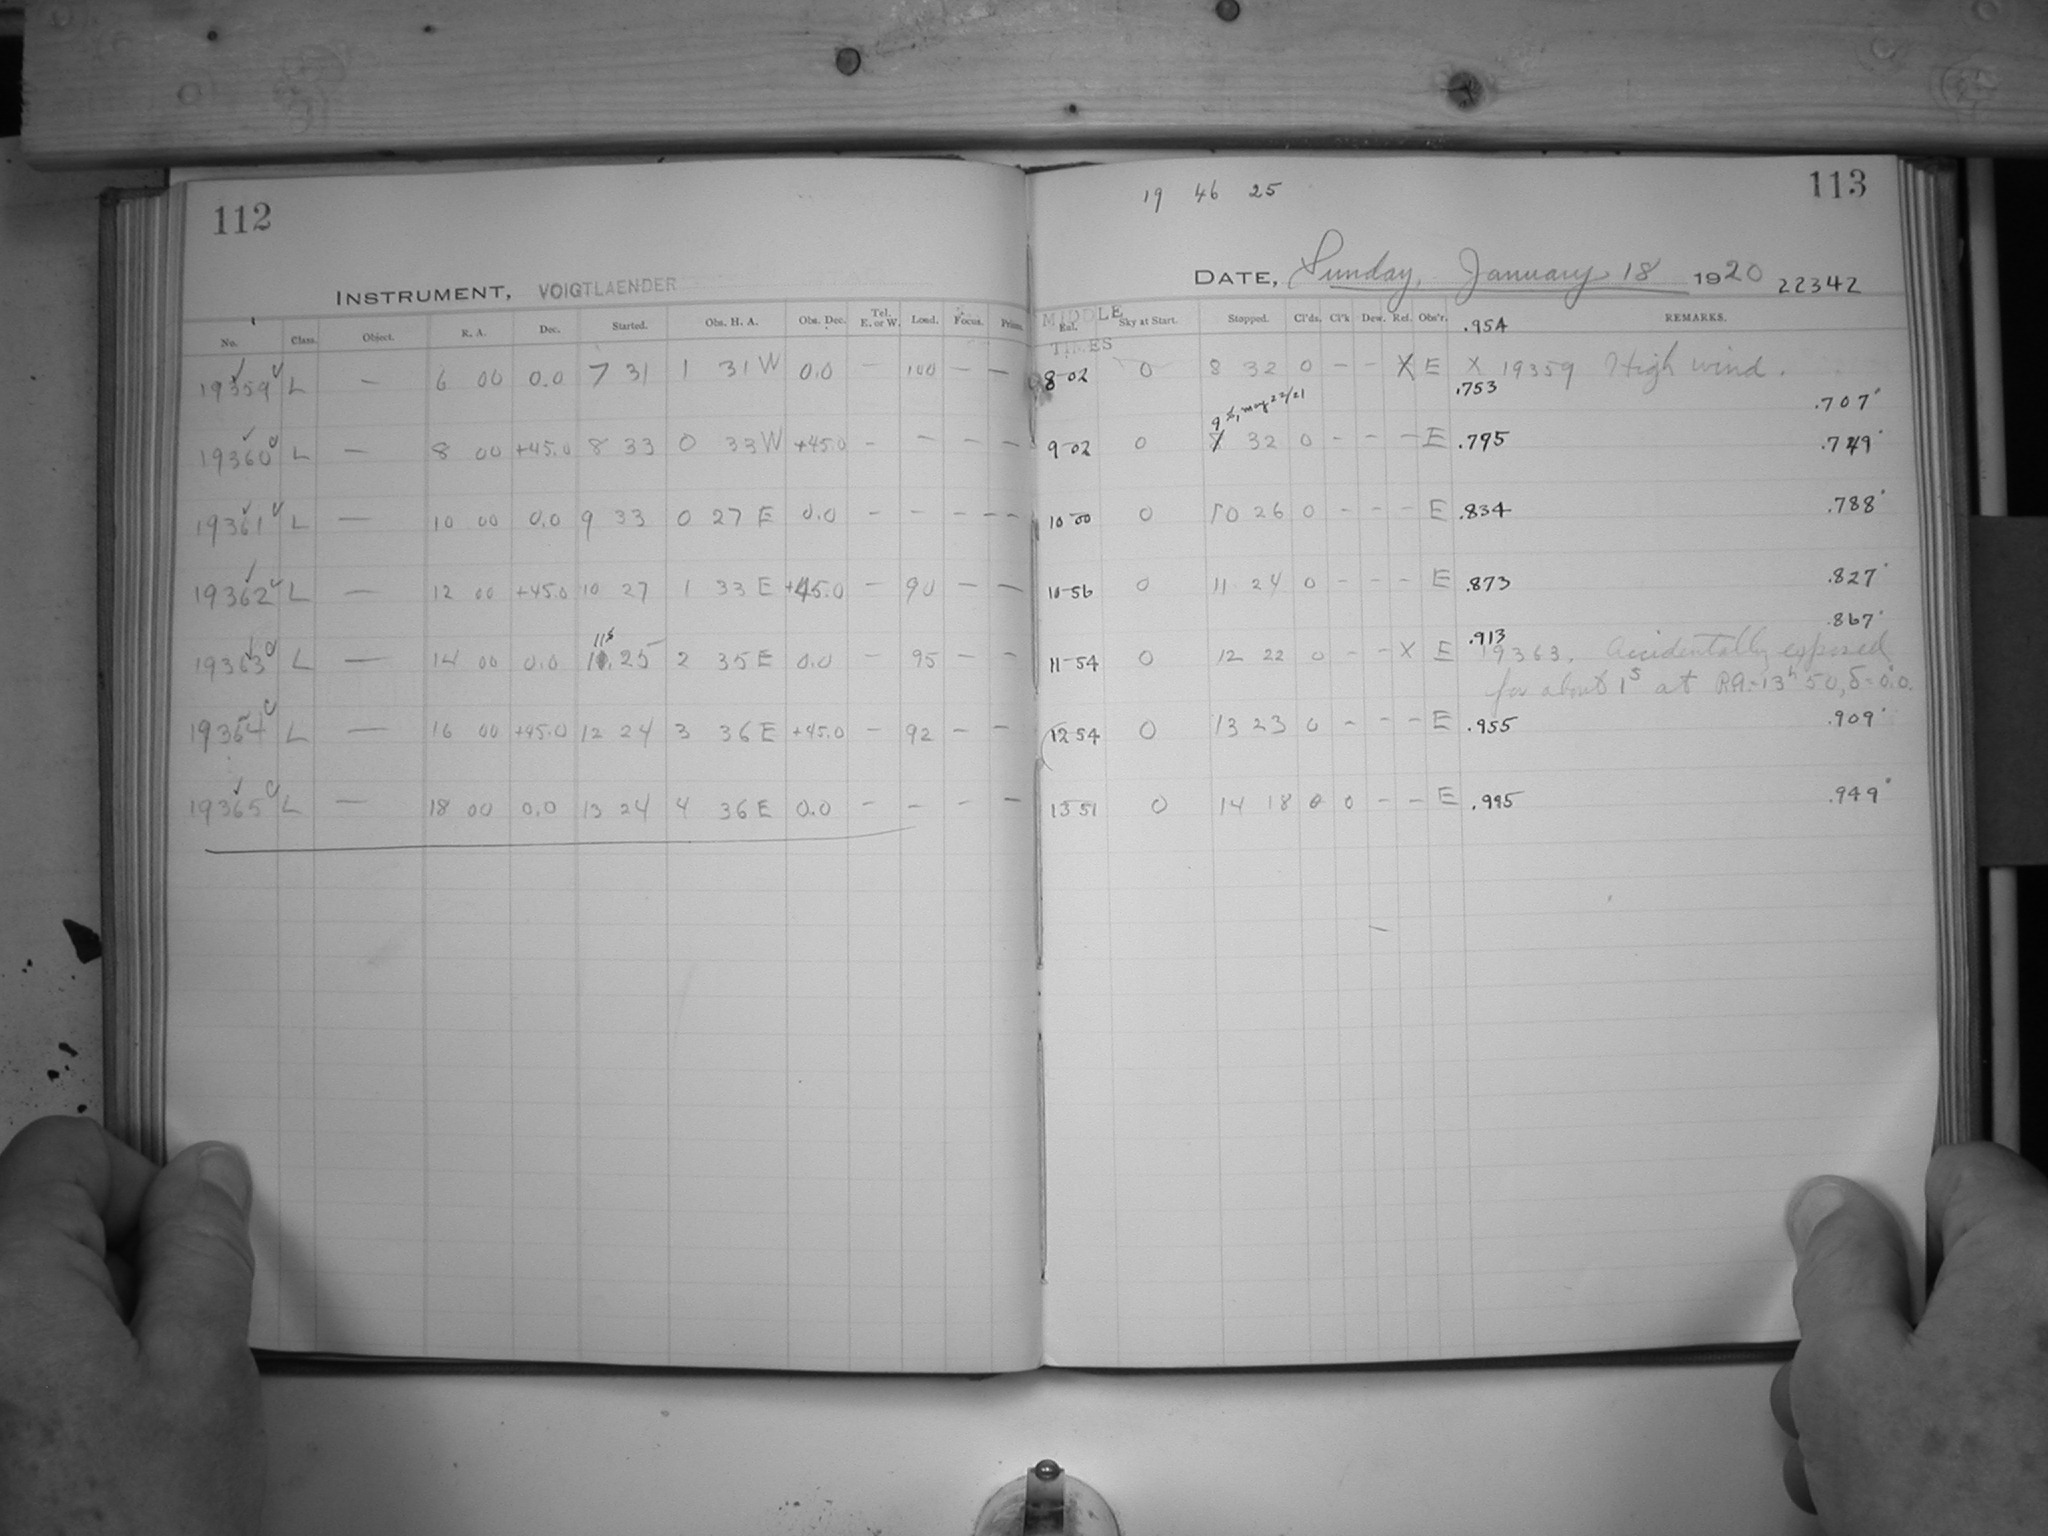 112
INSTRUMENT, VOIGTLAENDER
No. Class. Object. R. A. Dec. Started. Obs. H. A. Obs. Dec. Tel. E. or W. Load. Focus. Prism.
19359 L — 6 00 0.0 7 31 1 31 W 0.0 — 100 — —
19360 L — 8 00 +45.0 8 33 0 33 W +45.0 - - — —
19361 L — 10 00 0.0 9 33 0 27 E 0.0 - - - - -
19362 L — 12 00 +45.0 10 27 1 33 E +45.0 - 90 — —
11
19363 L — 14 00 0.0 25 2 35 E 0.0 - 95 - -
19364 L — 16 00 +45.0 12 24 3 36 E +45.0 - 92 - -
19365 L — 18 00 0.0 13 24 4 36 E 0.0 - - - -
19 46 25
113
DATE, Sunday, January 18 1920 22342
MIDDLE TIMES
Exl. Sky at Start. Stopped. Cl'ds. Cl'k Dew. Ref. Obs'r. REMARKS.
.954
8-02 0 8 32 0 - - X E X 19359 High wind.
.753
.707
9 , may 22/21
9-02 0 8 32 0 - - - E .795 .749
10-00 0 10 26 0 - - - E .834 .788
10-56 0 11 24 0 - - - E .873 .827
.867
.913
11-54 0 12 22 0 - - X E 19363. Accidentally exposed
for about 1s at RA=13h 50, δ=0.0.
12-54 0 13 23 0 - - - E .955 .909
13-51 0 14 18 0 0 - - E .995 .949